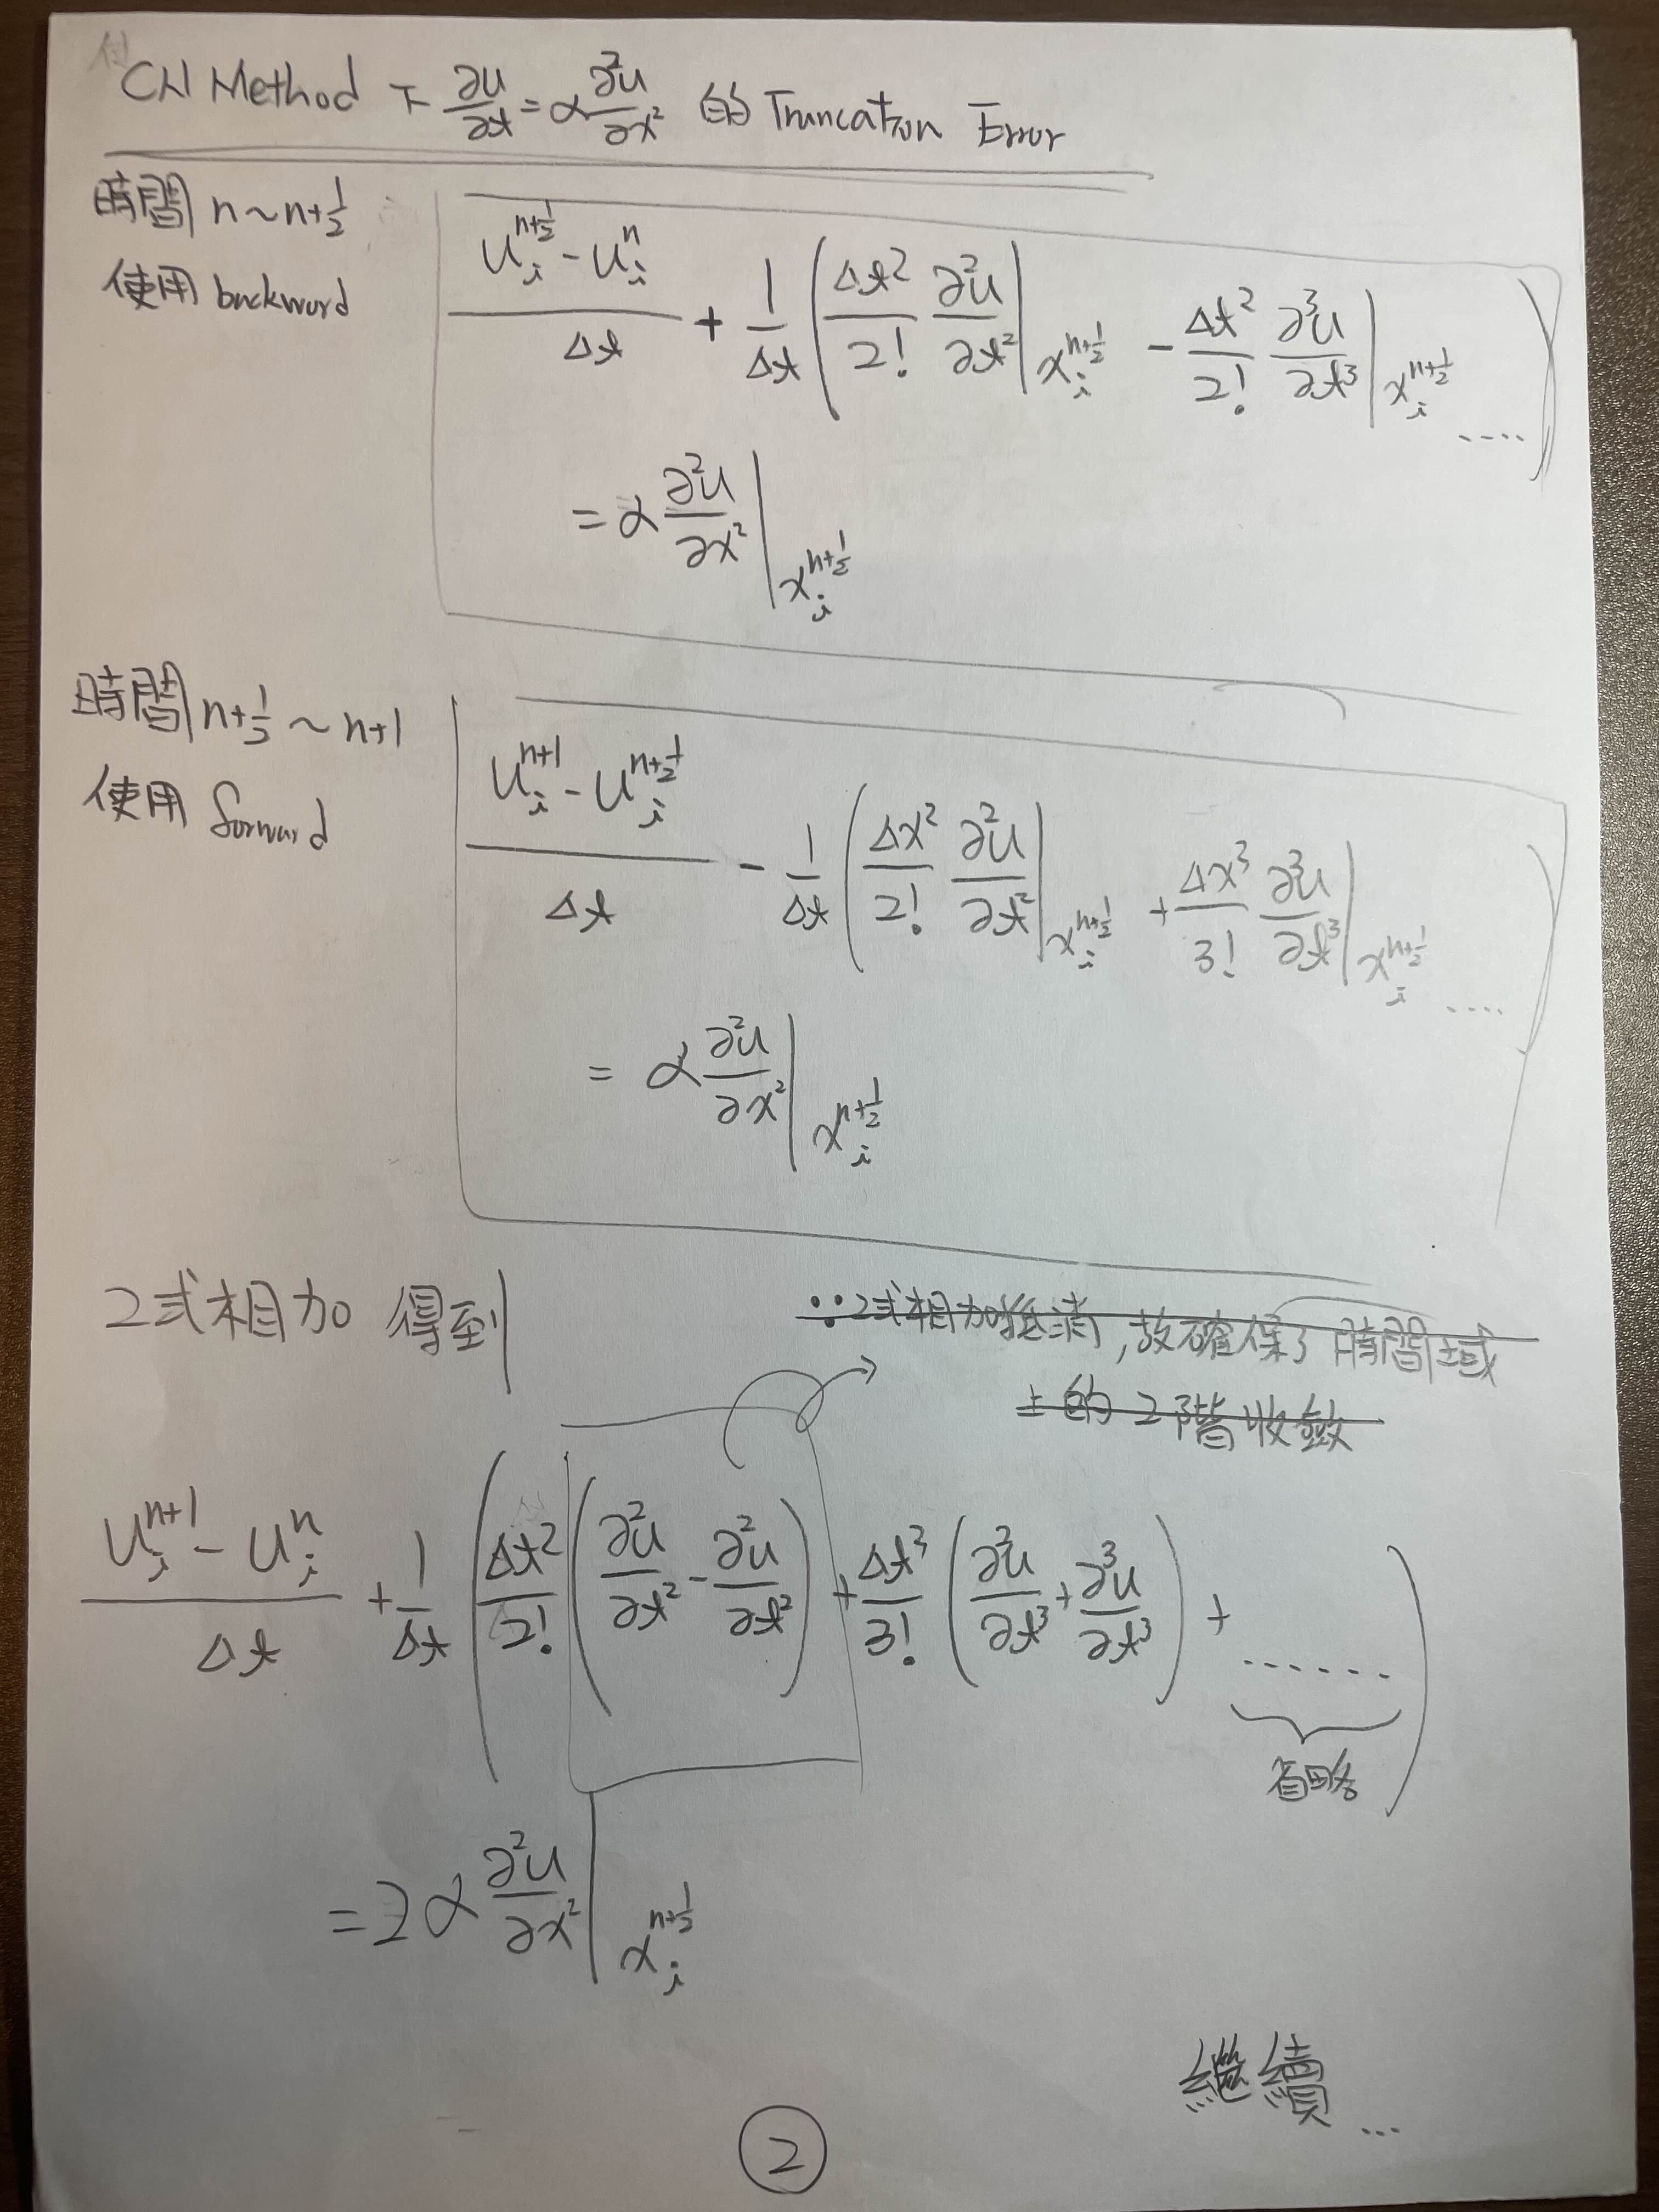 CN Method 下 ∂u/∂t = α ∂²u/∂x² 的 Truncation Error
時間 n ~ n+1/2
使用 backward
(u_i^{n+1/2} - u_i^n)/Δt + 1/Δt ( Δt²/2! ∂²u/∂t² |_{x_i^{n+1/2}} - Δt²/2! ∂³u/∂t³ |_{x_i^{n+1/2}} .... )
= α ∂²u/∂x² |_{x_i^{n+1/2}}
時間 n+1/2 ~ n+1
使用 forward
(u_i^{n+1} - u_i^{n+1/2})/Δt - 1/Δt ( Δx²/2! ∂²u/∂t² |_{x_i^{n+1/2}} + Δx³/3! ∂³u/∂t³ |_{x_i^{n+1/2}} .... )
= α ∂²u/∂x² |_{x_i^{n+1/2}}
2式相加 得到
∵2式相加抵消,故確保了時間域
上的 2階收斂
(u_i^{n+1} - u_i^n)/Δt + 1/Δt ( Δt²/2! ( ∂²u/∂t² - ∂²u/∂t² ) + Δt³/3! ( ∂³u/∂t³ + ∂³u/∂t³ ) + ...... )
省略
= 2α ∂²u/∂x² |_{x_i^{n+1/2}}
繼續...
2